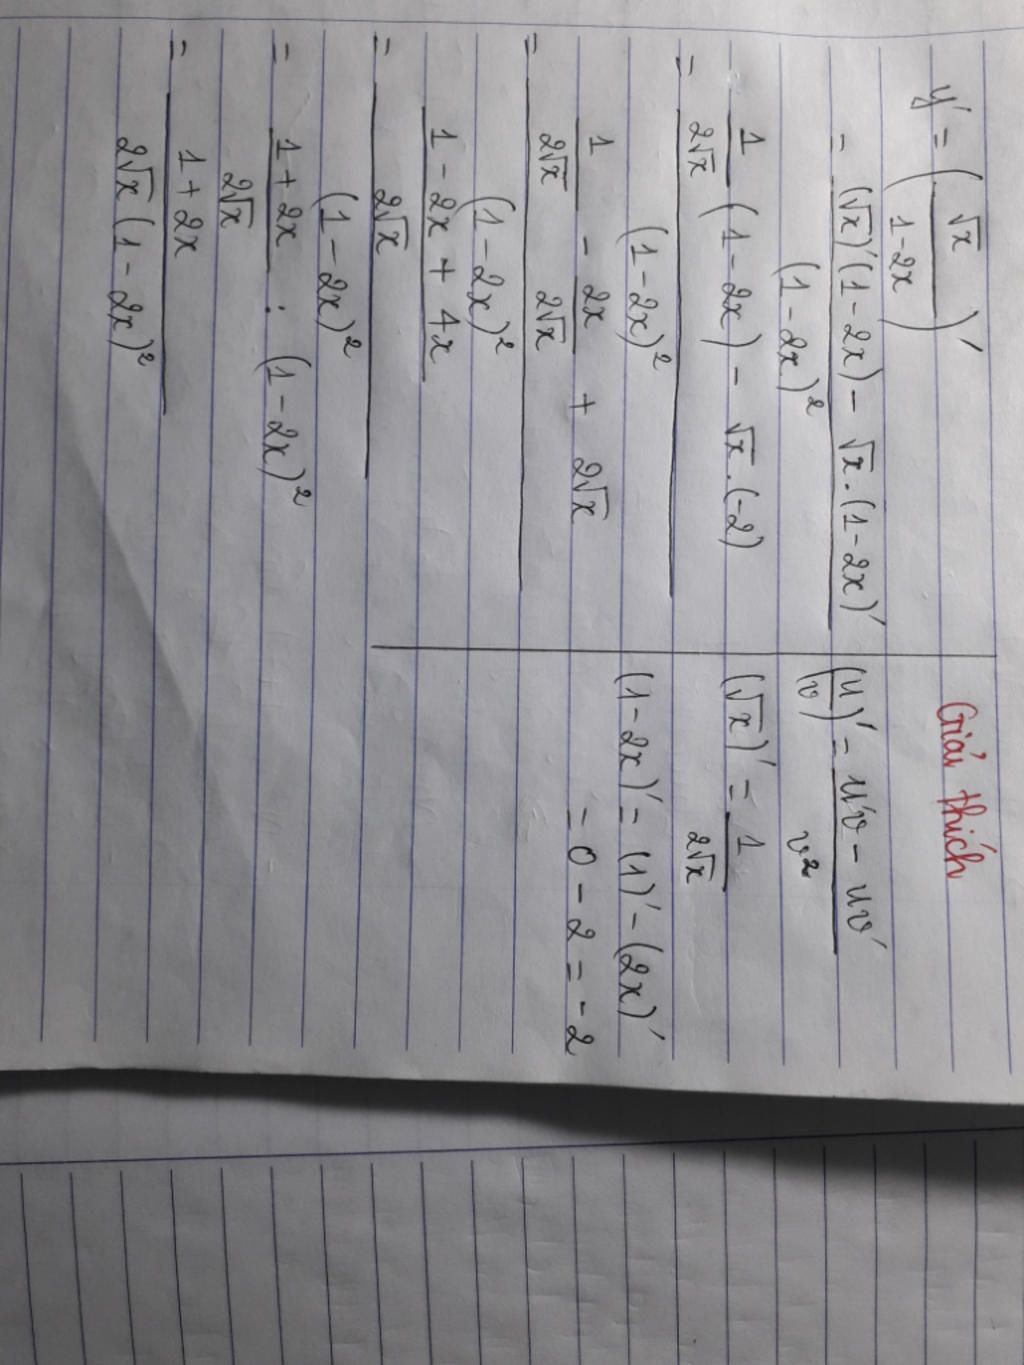 y' = (√x / (1-2x))'
= ((√x)'(1-2x) - √x.(1-2x)') / (1-2x)²
= (1/(2√x) (1-2x) - √x.(-2)) / (1-2x)²
= (1/(2√x) - 2x/(2√x) + 2√x) / (1-2x)²
= ((1-2x+4x)/(2√x)) / (1-2x)²
= (1+2x)/(2√x) : (1-2x)²
= (1+2x) / (2√x (1-2x)²)
Giải thích
(u/v)' = (u'v - uv') / v²
(√x)' = 1/(2√x)
(1-2x)' = (1)' - (2x)'
= 0 - 2 = -2